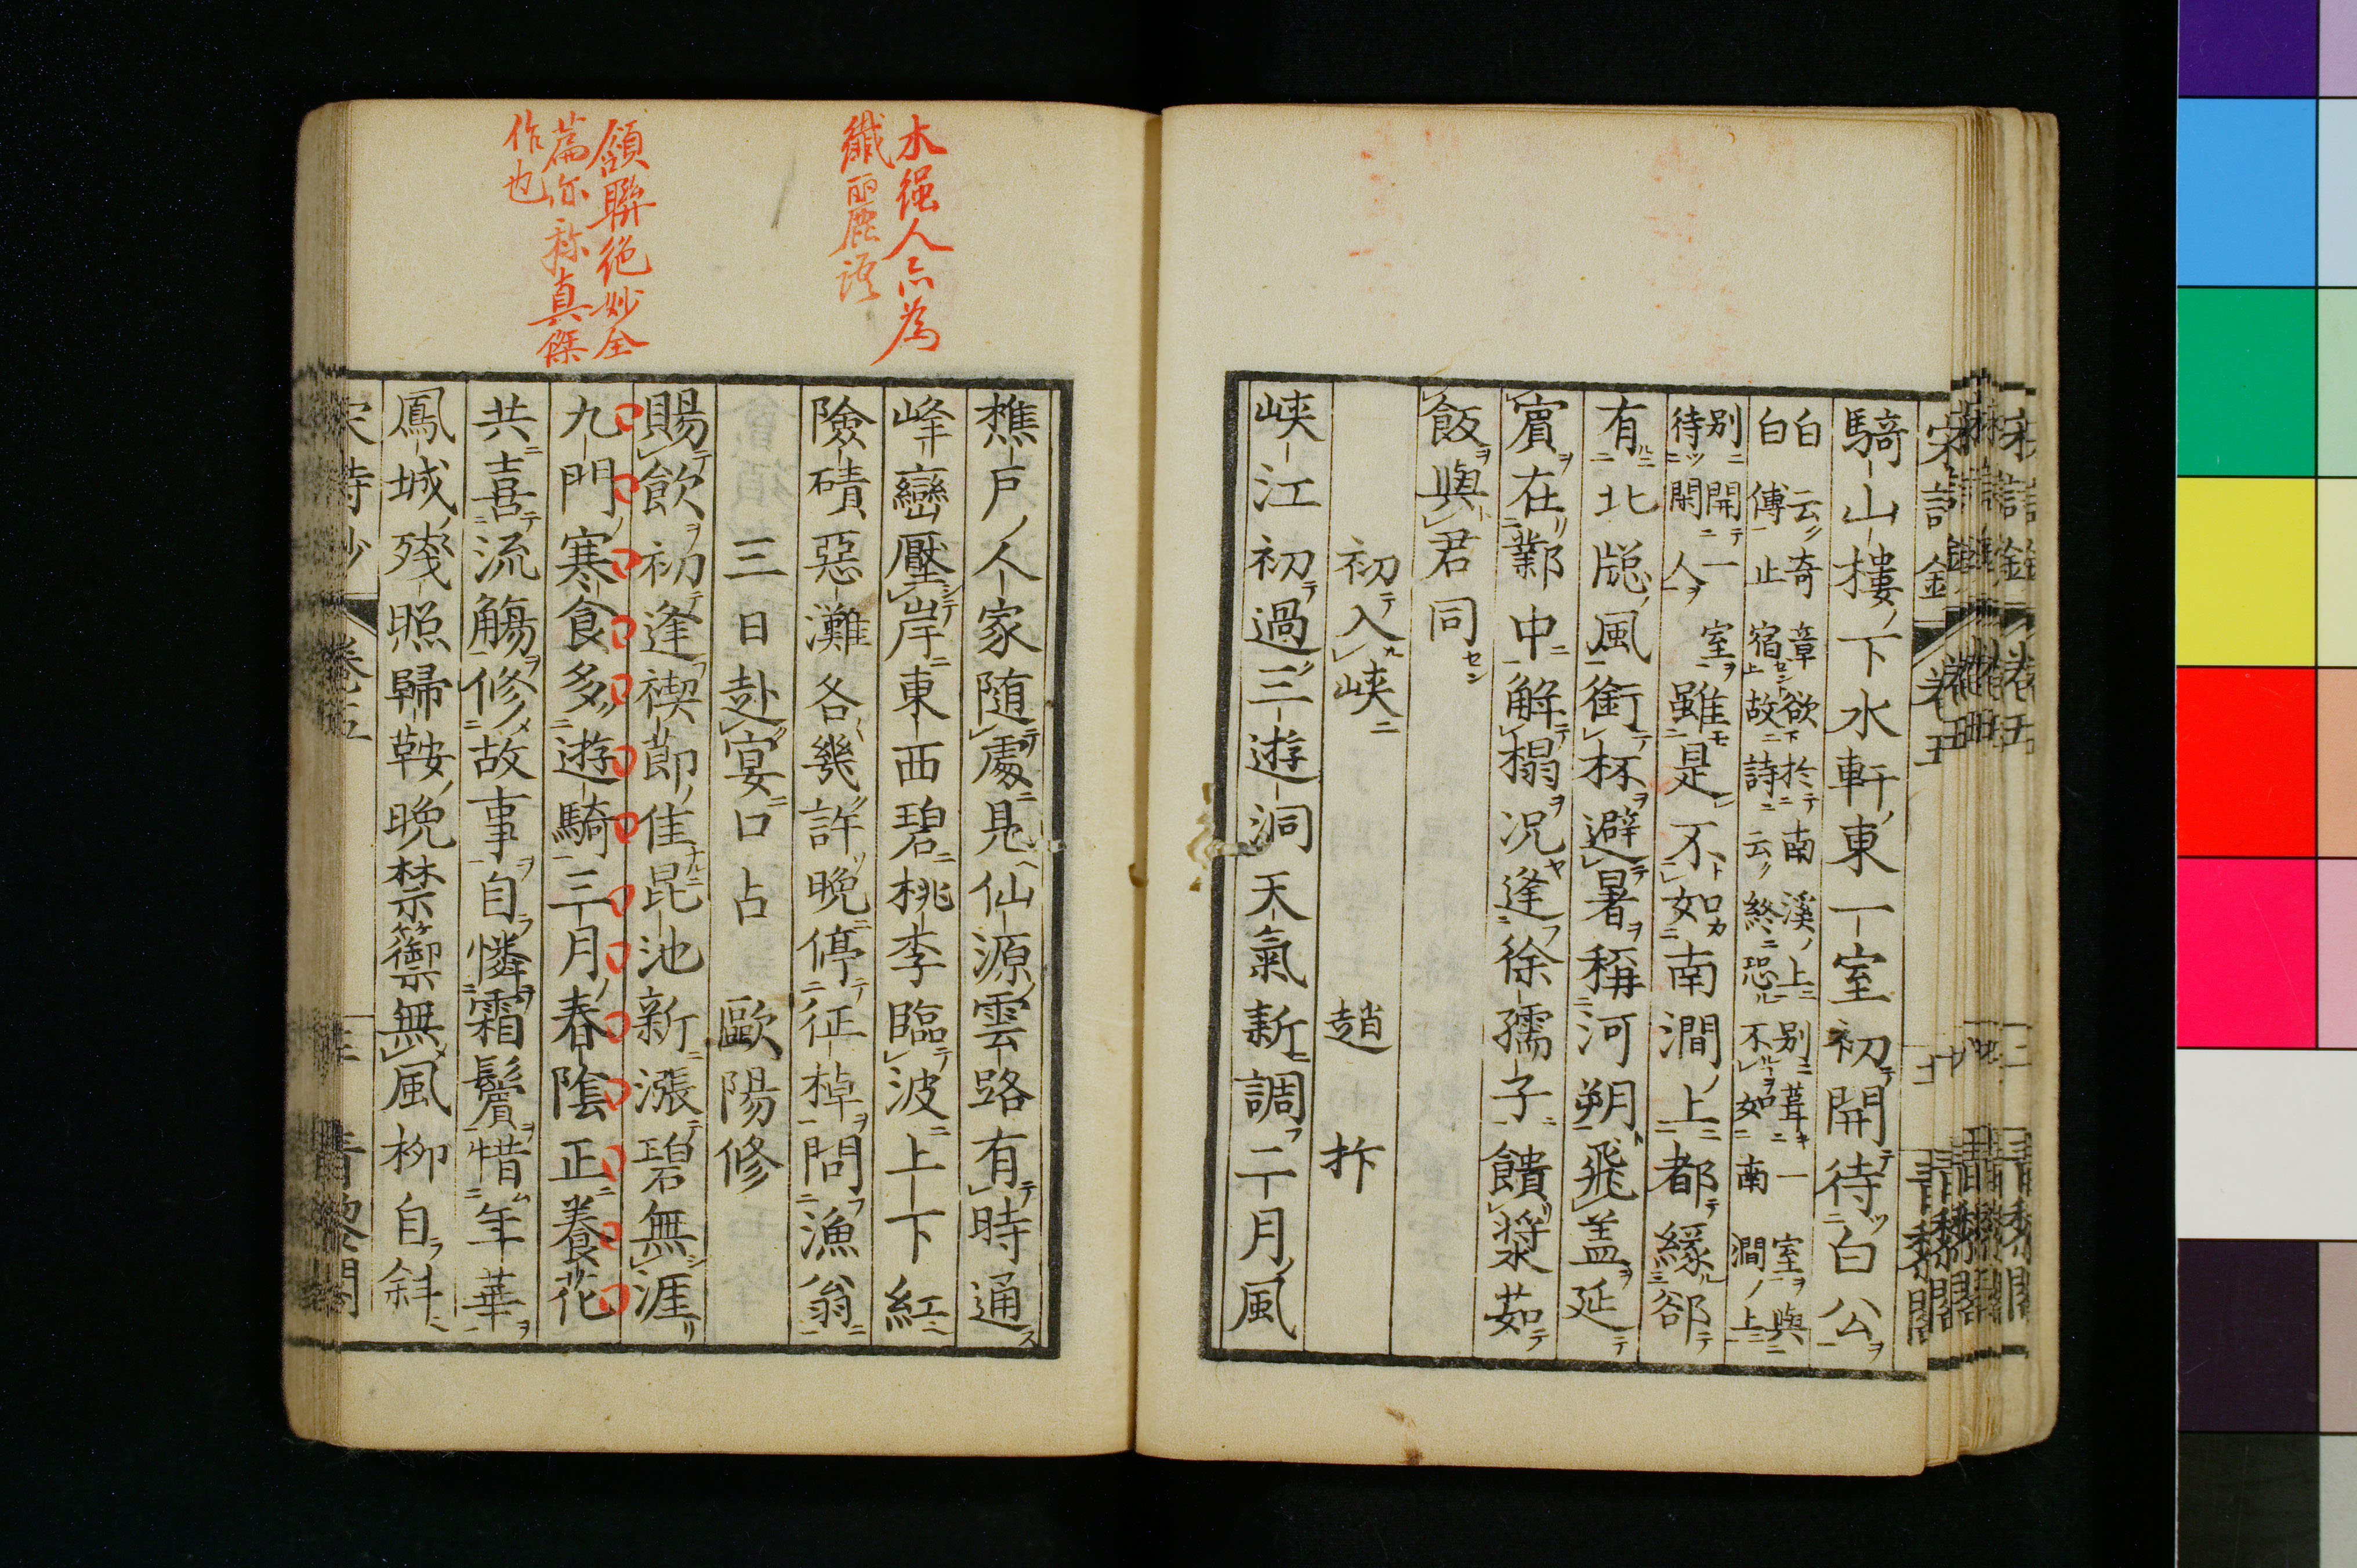 騎山樓下水軒東一室初開待白公
白云奇章欲於南溪上別葺一室與
白傅止宿故詩云終恐不如南澗上
別開一室
待閑人
雖是不如南澗上都緣郤
有北牕風銜杯避暑稱河朔飛盖延
賓在鄴中解榻況逢徐孺子饋漿茹
飯與君同
初入峽
趙抃
峽江初過三遊洞天氣新調二月風
樵戶人家随處見仙源雲路有時通
峰巒壓岸東西碧桃李臨波上下紅
險磧惡灘各幾許晩停征棹問漁翁
三日赴宴口占
歐陽修
賜飲初逢禊節佳昆池新漲碧無涯
九門寒食多遊騎三月春陰正養花
共喜流觴修故事自憐霜鬢惜年華
鳳城殘照歸鞍晩禁籞無風柳自斜
水强人亦為
纖麗語
頷聯絶妙全
篇亦称真傑
作也
宋詩
卷五
青黎閣